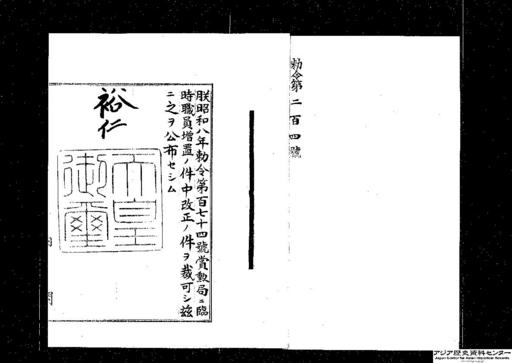 勅令第二百四號
朕昭和八年勅令第百七十四號賞勲局ニ臨
時職員増置ノ件中改正ノ件ヲ裁可シ茲
ニ之ヲ公布セシム
裕仁
天皇
御璽
アジア歴史資料センター
Japan Center for Asian Historical Records